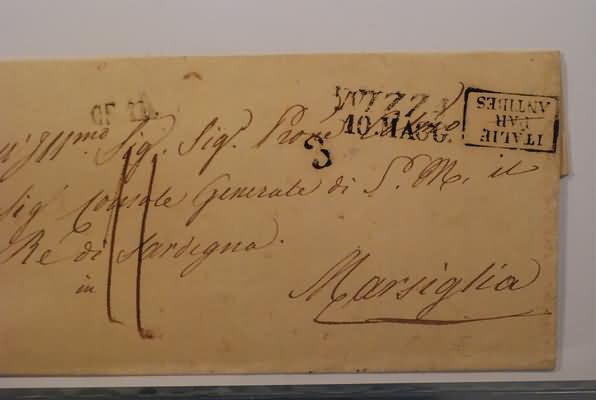 NIZZA
10. MAGG.
ITALIE
PAR
ANTIBES
Ill.mo Sig. Sig.
Sig. Console Generale di S. M. il
Re di Sardegna.
in
Marsiglia